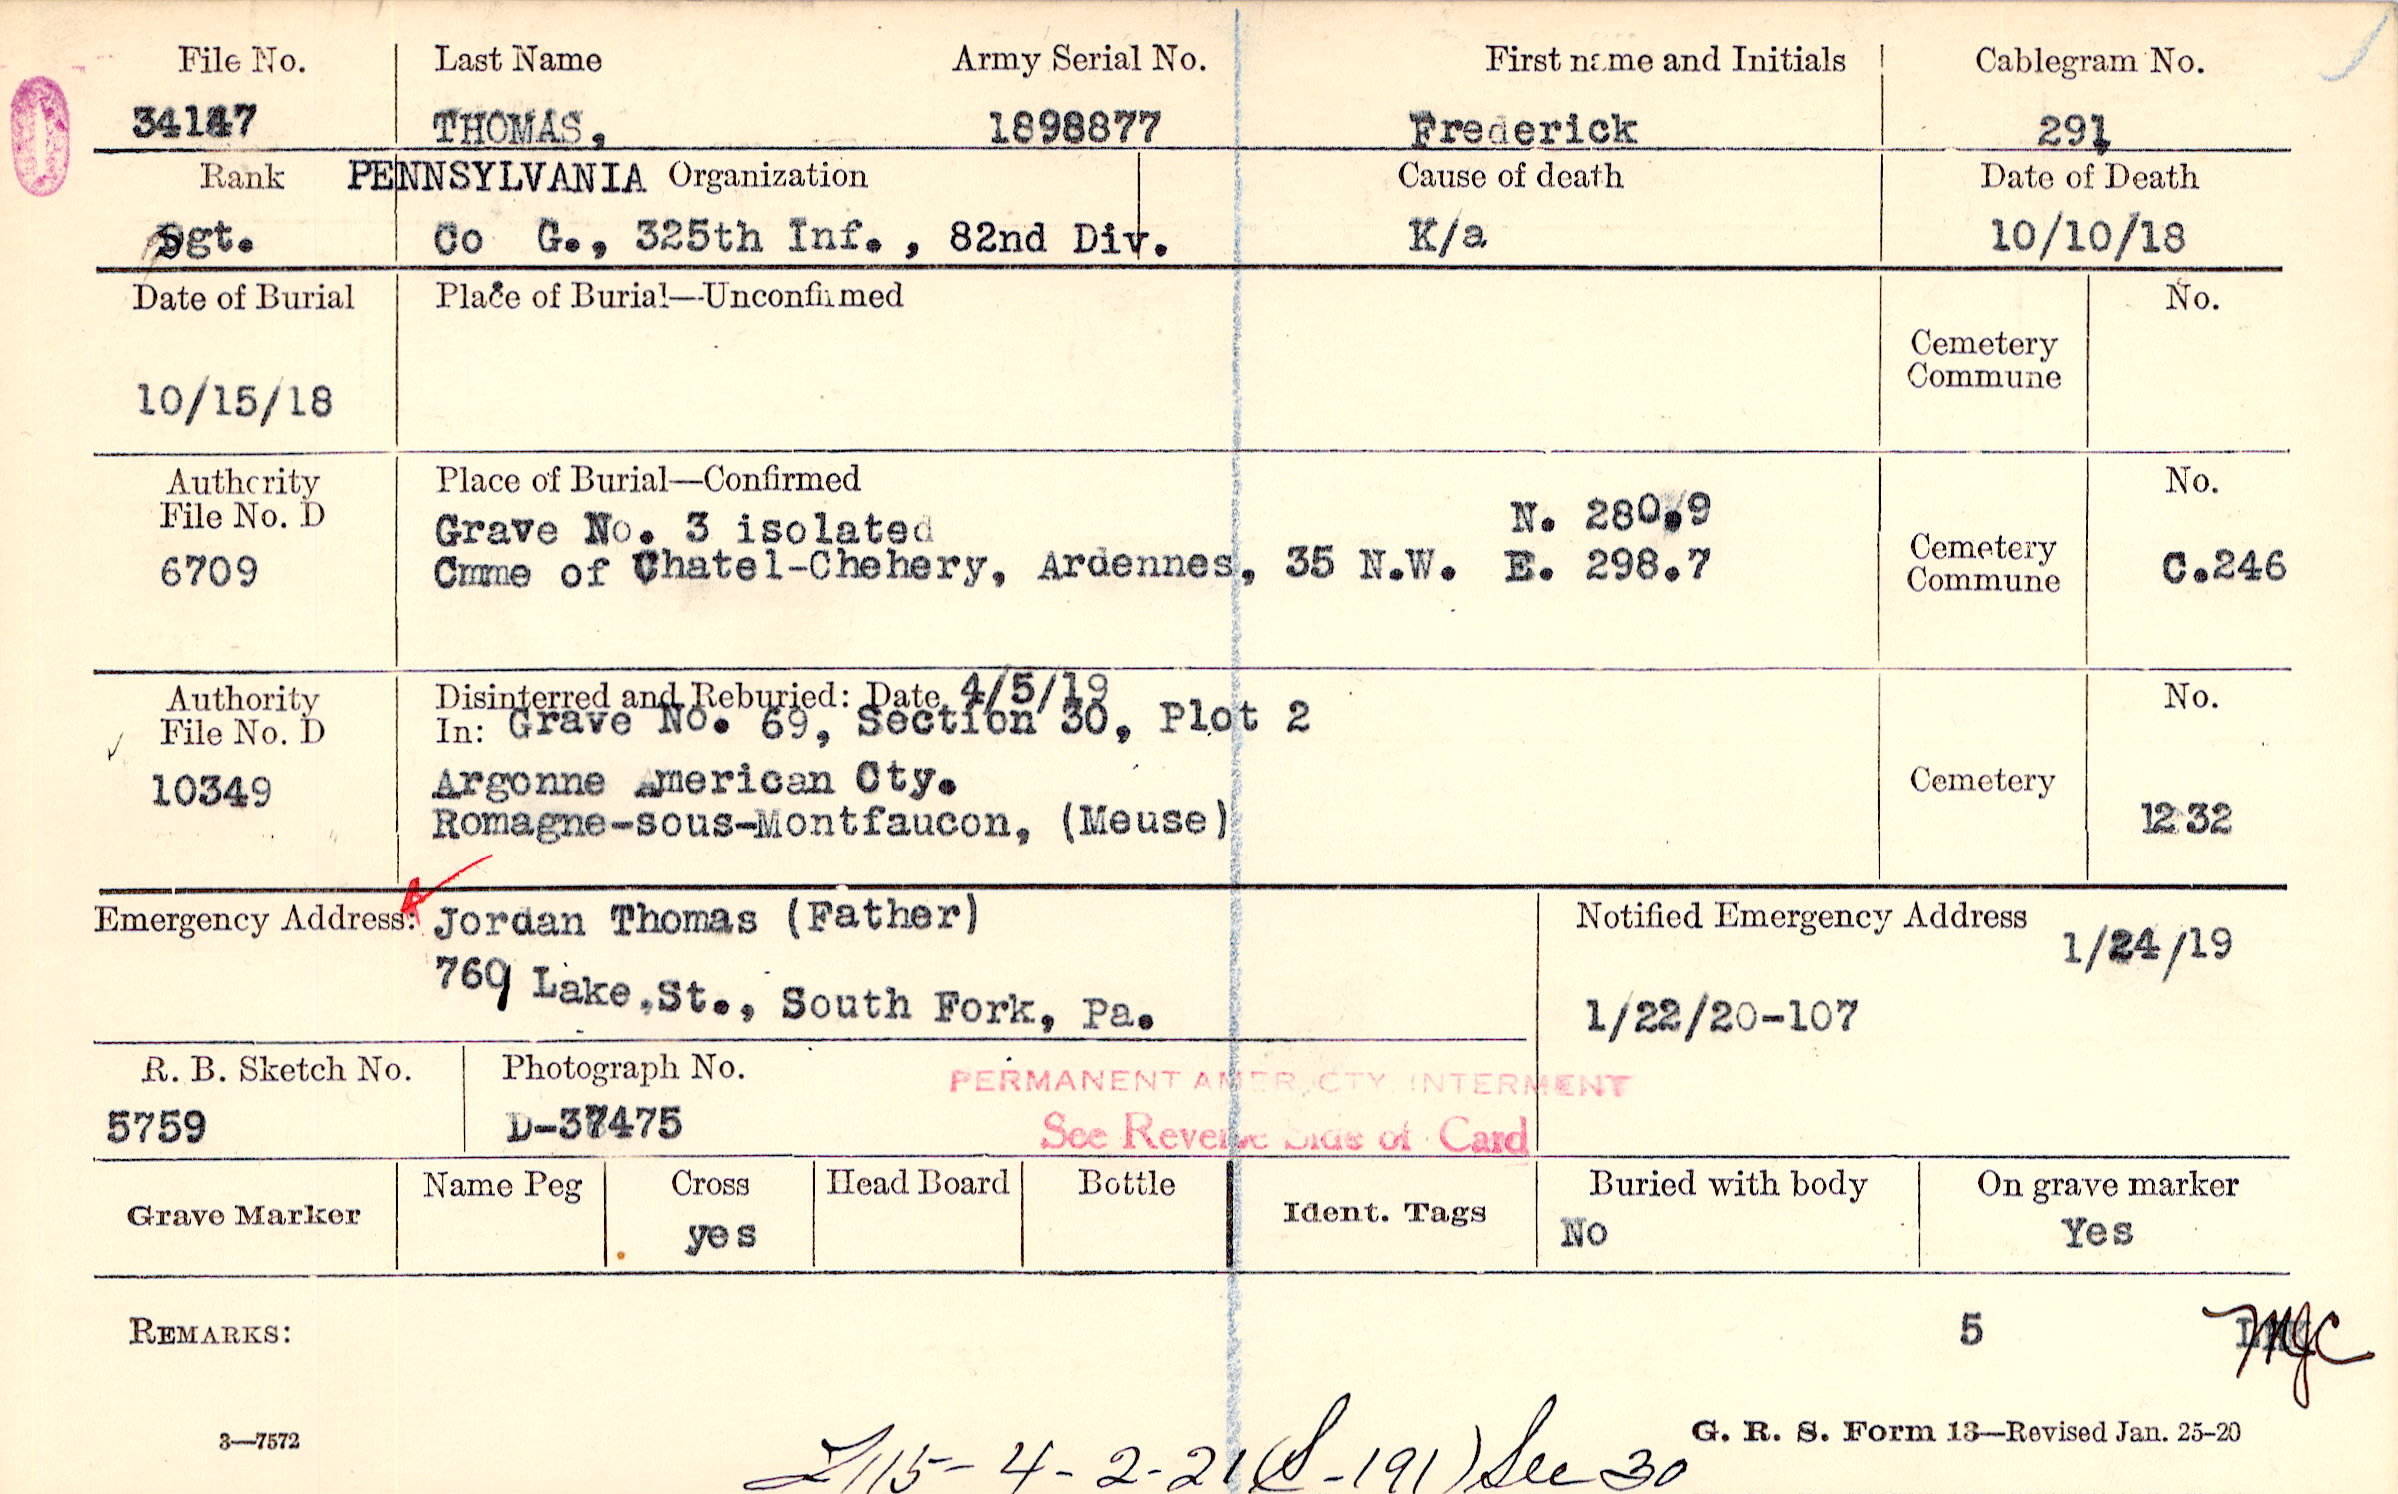 File No. Last Name Army Serial No. First name and Initials Cablegram No.
34147 THOMAS, 1898877 Frederick 291
Rank PENNSYLVANIA Organization Cause of death Date of Death
Sgt. Co G., 325th Inf., 82nd Div. K/a 10/10/18
Date of Burial Place of Burial—Unconfirmed No.
Cemetery
Commune
10/15/18
Authority Place of Burial—Confirmed No.
File No. D Grave No. 3 isolated N. 280.9
6709 Cmme of Chatel-Chehery, Ardennes, 35 N.W. E. 298.7 Cemetery Commune C.246
Authority Disinterred and Reburied: Date 4/5/19 No.
File No. D In: Grave No. 69, Section 30, Plot 2
10349 Argonne American Cty. Cemetery
Romagne-sous-Montfaucon, (Meuse) 1232
Emergency Address: Jordan Thomas (Father) Notified Emergency Address 1/24/19
769 Lake St., South Fork, Pa. 1/22/20-107
R. B. Sketch No. Photograph No. PERMANENT AMER. CTY. INTERMENT
5759 D-37475 See Reverse Side of Card
Grave Marker Name Peg Cross Head Board Bottle Ident. Tags Buried with body On grave marker
yes No Yes
REMARKS: 5 MJC
3—7572 G. R. S. Form 13—Revised Jan. 25-20
115-4-2-21 (S-191) Sec 30